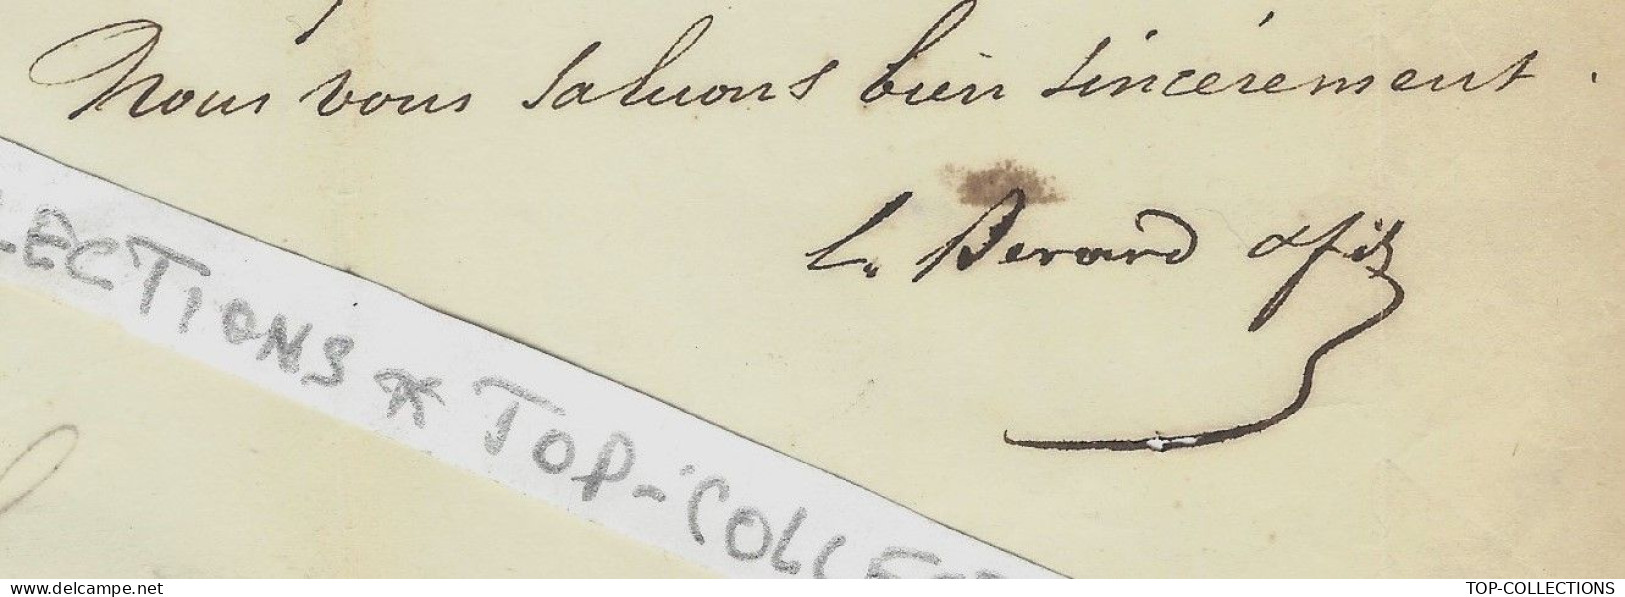 Nous vous saluons bien sincérement.
L. Berard & fils
LECTIONS * TOP-COLLEC
www.delcampe.net
TOP-COLLECTIONS